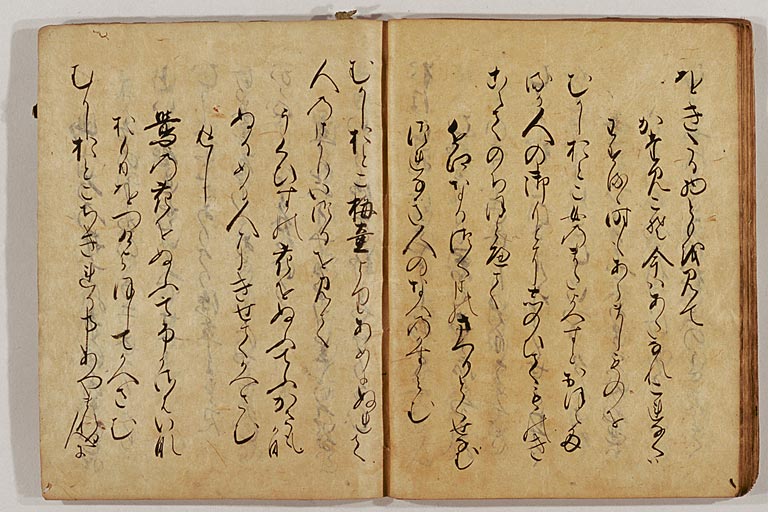 をきたる物とも越見て
かたみこそ今はあたなれこれなくは
わするゝ時もあらましものを
むかしおとこ女のまたよへすとおほえた
るか人の御もとにしのひてものき
こえてのちほとへて
近江なるつくまのまつりとくせなむ
つれなき人のなへのかすみむ
むかしおとこ梅壷よりあめにぬれて
人のまかりいつるを見て
うくひすの花をぬふてふかさも哉
ぬるめる人にきせてかへさむ
返し
鶯の花をぬふてふかさはいな
おもひをつけよほしてかへさむ
むかしおとこちきれる事あやまれる人に